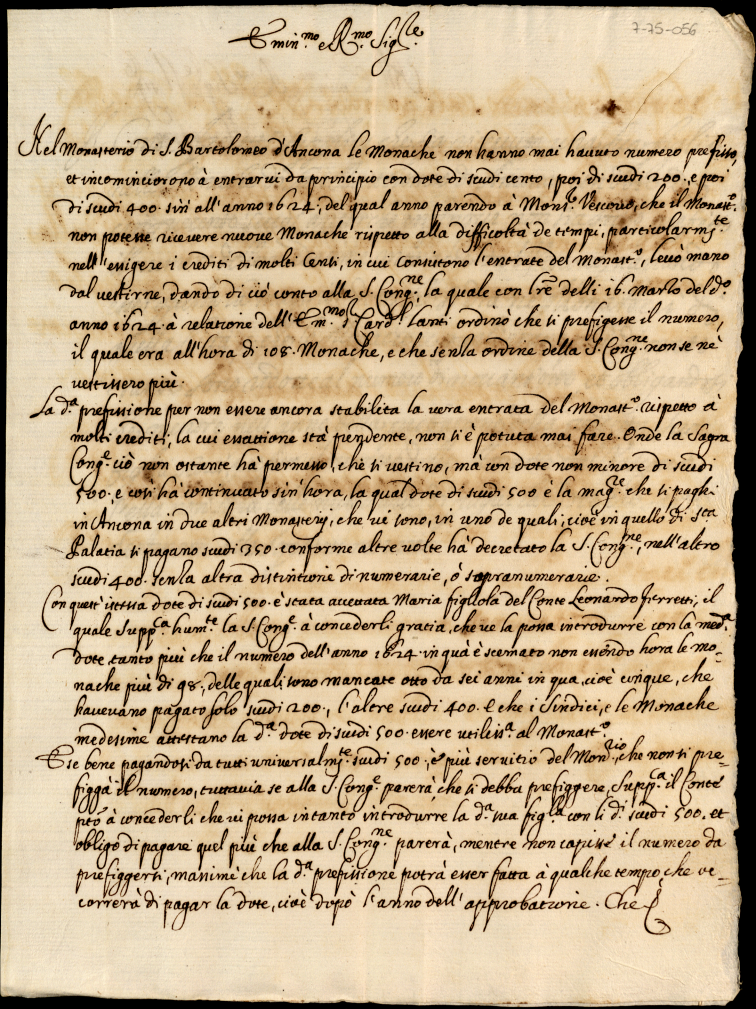 7-75-056
Emin.mo e R.mo Sig.re
Nel Monasterio di S. Bartolomeo d'Ancona le Monache non hanno mai havuto numero prefisso,
et incominciorono à entrarvi da principio con dote di scudi cento, poi di scudi 200. e poi
di scudi 400. sin' all'anno 1624, del qual anno parendo à Mons.r Vescovo, che il Monast.o
non potesse ricevere nuove Monache rispetto alla difficoltà de tempi, particolarm.te
nell'essigere i crediti di molti Censi, in cui consistono l'entrate del Monast.o, levò mano
dal vestirne, dando di ciò conto alla S. Cong.ne la quale con l're delli 16. Marzo del d.o
anno 1624. à relatione dell'Em.mo S. Card.l Lanti ordinò che si prefigesse il numero,
il quale era all'hora di 108. Monache, e che senza ordine della S. Cong.ne non se nè
vestissero più.
La d.a prefissione per non essere ancora stabilita la vera entrata del Monast.o rispetto à
molti crediti, la cui essattione stà pendente, non si è potuta mai fare. Onde la Sagra
Cong.e ciò non ostante hà permesso, che si vestino, mà con dote non minore di scudi
500. e così hà continuato sin'hora, la qual dote di scudi 500 è la mag.re che si paghi
in Ancona in due altri Monasterij, che vi sono, in uno de quali, cioè in quello di S.ta
Palatia si pagano scudi 350. conforme altre volte hà decretato la S. Cong.ne, nell'altro
scudi 400. senza altra distintione di numerarie, ò sopranumerarie.
Con quest'istessa dote di scudi 500. è stata accettata Maria figliola del Conte Leonardo Ferretti, il
quale Supp.ca hum.te la S. Cong.e à concederli gratia, che ve la possa introdurre con la med.a
dote, tanto più che il numero dell'anno 1624 in quà è scemato non essendo hora le mo-
nache più di 98., delle quali sono mancate otto da sei anni in qua, cioè cinque, che
havevano pagato solo scudi 200., l'altre scudi 400. e che i Sindici, e le Monache
medesime attestano la d.a dote di scudi 500. essere utiliss.a al Monast.o
E se bene pagandosi da tutti universalm.te scudi 500. è più servitio del Mon.rio, che non si pre-
figga il numero, tuttavia se alla S. Cong.e parerà, che si debba prefiggere, Supp.ca il Conte
p'to à concederli che vi possa intanto introdurre la d.a sua fig.la con li d.i scudi 500. et
obligo di pagare quel più che alla S. Cong.ne parerà, mentre non capisse il numero da
prefiggersi, massime che la d.a prefissione potrà esser fatta à qualche tempo, che oc-
correrà di pagar la dote, cioè dopò l'anno dell'approbatione. Che